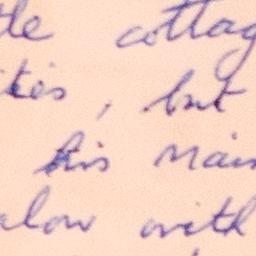 tle cottag
ties, but
his main
alow with